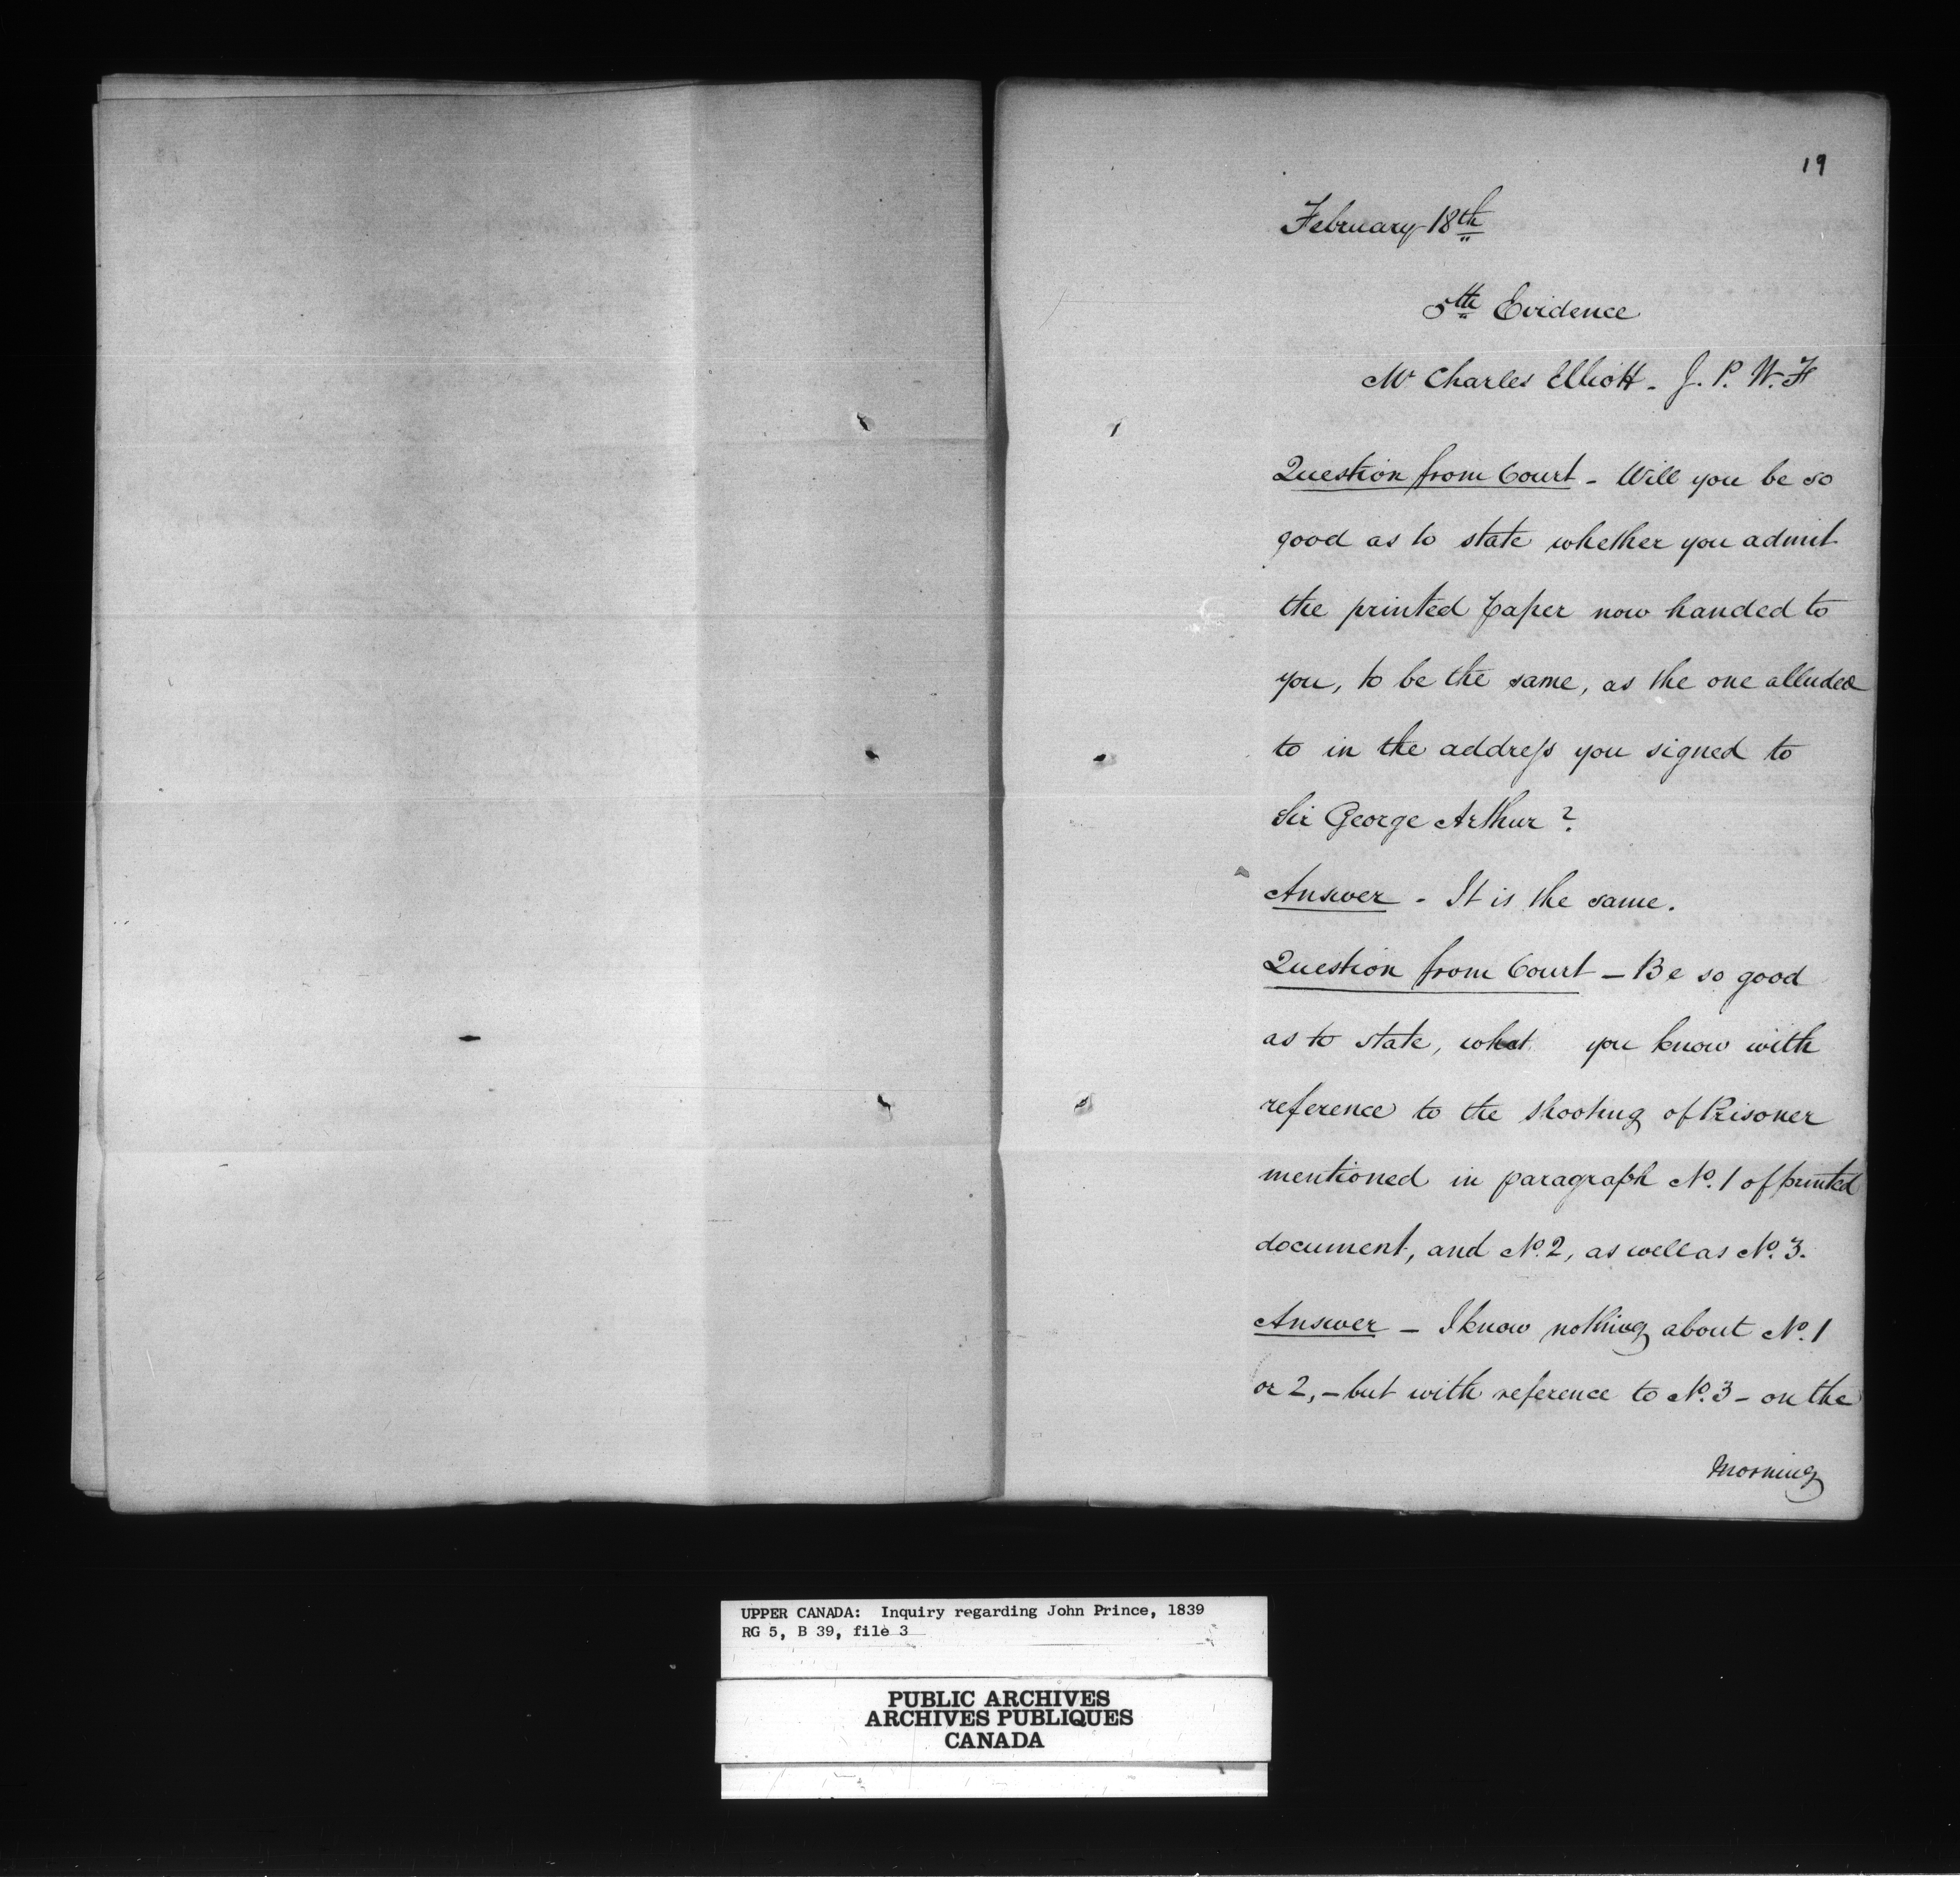 19
February 18th
5th Evidence
Mr Charles Elliott - J. P. W. F
Question from Court - Will you be so
good as to state whether you admit
the printed paper now handed to
you, to be the same, as the one alluded
to in the address you signed to
Sir George Arthur?
Answer - It is the same.
Question from Court - Be so good
as to state, what you know with
reference to the shooting of Prisoner
mentioned in paragraph No. 1 of printed
document, and No. 2, as well as No. 3.
Answer - I know nothing about No. 1
or 2, - but with reference to No. 3 - on the
morning
UPPER CANADA: Inquiry regarding John Prince, 1839
RG 5, B 39, file 3
PUBLIC ARCHIVES
ARCHIVES PUBLIQUES
CANADA